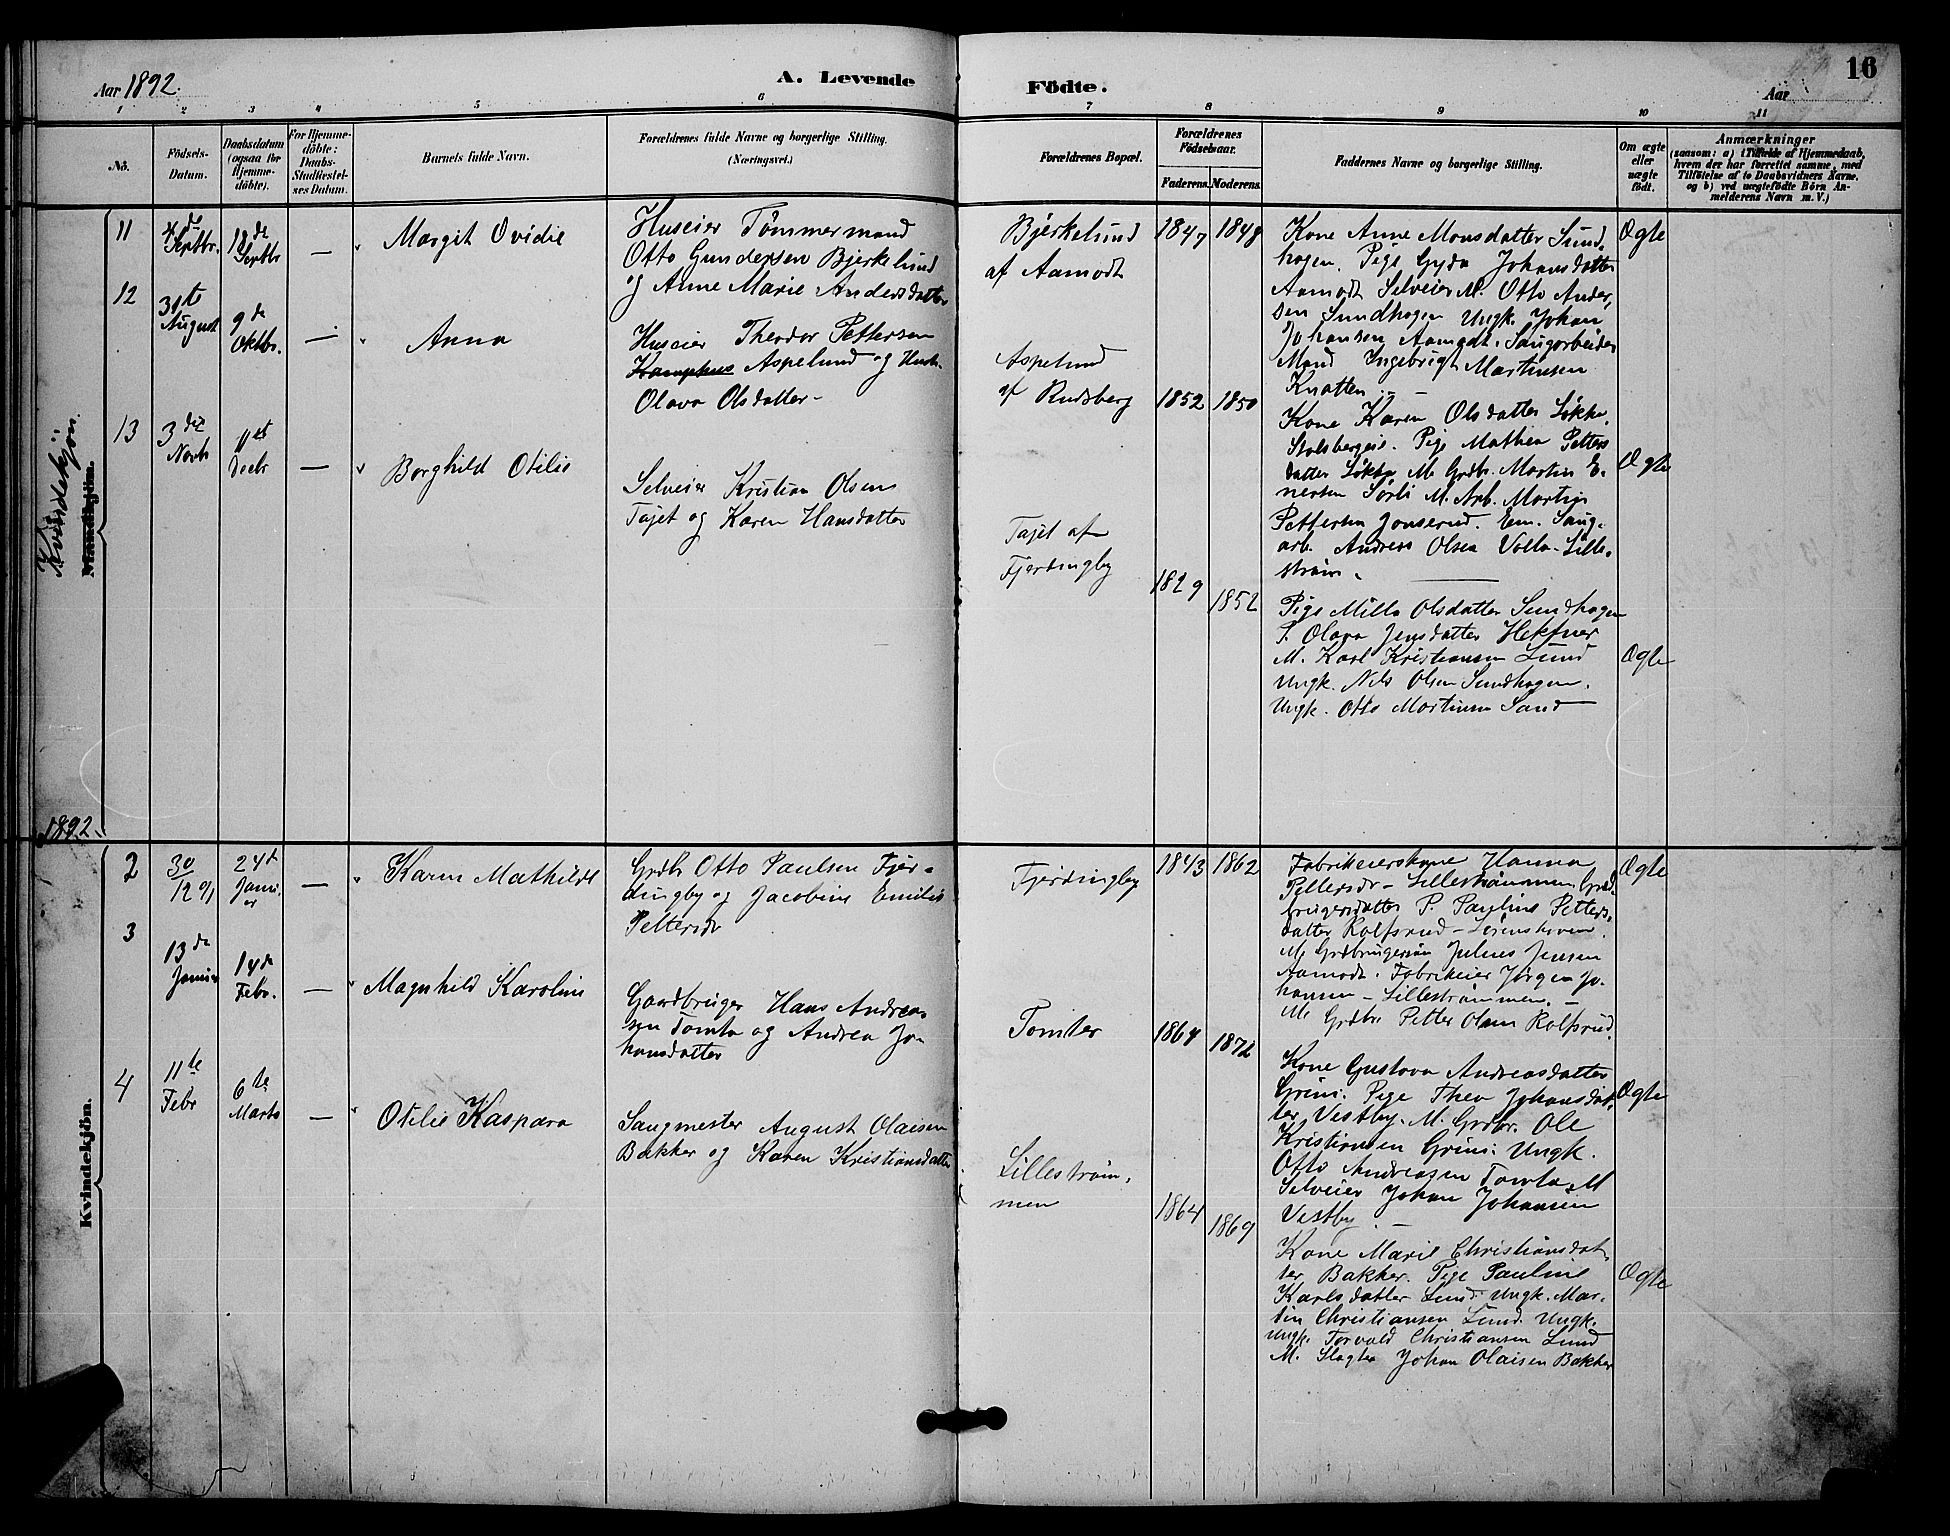 Aar 1892.
A. Levende Födte.
16
Aar
1 2 3 4 5 6 7 8 9 10 11
No.
Födsels-Datum.
Daabsdatum (ogsaa for Hjemme-döbte).
For Hjemme-döbte: Daabs-Stadfæstel-ses Datum.
Barnets fulde Navn.
Forældrenes fulde Navne og borgerlige Stilling. (Næringsvei.)
Forældrenes Bopæl.
Forældrenes Födselsaar.
Faderens.
Moderens.
Faddernes Navne og borgerlige Stilling.
Om ægte eller uægte födt.
Anmærkninger
(saasom: a) i Tilfælde af Hjemmedaab,
hvem der har forrettet samme, med
Tilföielse af to Daabsvidners Navne,
og b) ved uægtefödte Börn An-
melderens Navn m. V.)
Kvindekjøn.
Mandkjön.
11
4de Septbr.
18de Septbr
—
Margit Ovidie
Huseier Tömmermand
Otto Gundersen Bjerkelund
og Anne Marie Andersdatter
Bjerkelund
af Aamodt
1847
1848
Kone Anne Monsdatter Sund-
hagen. Pige Gyda Johansdatter
Aamodt Selveier M. Otto Ander,
sen Sundhagen Ungk. Johan
Johansen Aamodt. Saugarbeider
Mand Ingebrigt Martinsen
Knatten. —
Ægte
12
31te August
9de Oktbr.
—
Anna
Huseier Theodor Pettersen
Kamphus Aspelund og Hustr.
Olava Olsdatter -
Aspelund
af Rudsberg
1852
1850
Kone Karen Olsdatter Løkke,
Stalsbergeie. Pige Mathea Petters
datter Løkke M. Grdbr. Martin E-
nersen Sørli M. Arb. Martin
Pettersen Jonserud. Em. Saug-
arb. Andreas Olsen Volla- Lille-
strøm.
Ægte
13
3die Novbr
11te Decbr
—
Borghild Otilie
Selveier Kristian Olsen
Tajet og Karen Hansdatter
Tajet af
Fjerdingby
1829
1852
Pige Milla Olsdatter Sundhagen
P. Olava Jensdatter Hektner
M. Karl Kristiansen Lund
Ungk. Nils Olsen Sundhagen.
Ungk. Otto Martinsen Sand
Ægte
1892.
Kvindekjön.
2
30/12 91
24de Janu-ar
—
Karen Mathilde
Grdbr Otto Paulsen Fjer-
dingby og Jacobine Emilie
Pettersdr
Fjerdingby
1843
1862
Fabrikeierskone Hanna
Pettersdr - Lillestrømmen, Grd-
brugersdatter P. Pauline Petters-
datter Rolfsrud - Sørenshoven
M. Grdbrugersøn Julius Jensen
Aamodt. Fabrikeier Jørgen Jo-
hansen - Lillestrømmen. -
M. Grdbr Petter Olsen Rolfsrud.
Ægte
3
13de Januar
14de Febr.
—
Magnhild Karoline
Gaardbruger Hans Andrea-
sen Tomta og Andrea Jo-
hansdatter
Tomter
1864
1872
Kone Gustava Andreasdatter
Grini. Pige Thea Johansdat-
ter Vestby. M. Grdbr. Ole
Kristiansen Grini. Ungk.
Otto Andreasen Tomta, M
Selveier Johan Johansen
Vestby. —
Ægte
4
11te Febr
6te Marts
—
Otilie Kaspara
Saugmester August Olaisen
Bakker og Karen Kristiansdatter
Lillestrøm-
men
1864
1869
Kone Marie Christiansdat-
ter Bakker. Pige Pauline
Karlsdatter Lund. Ungk. Mar-
tin Christiansen Lund. Ungk.
Ungk. Torvald Christiansen Lund
M. Slagter Johan Olaisen Bakker
Ægte